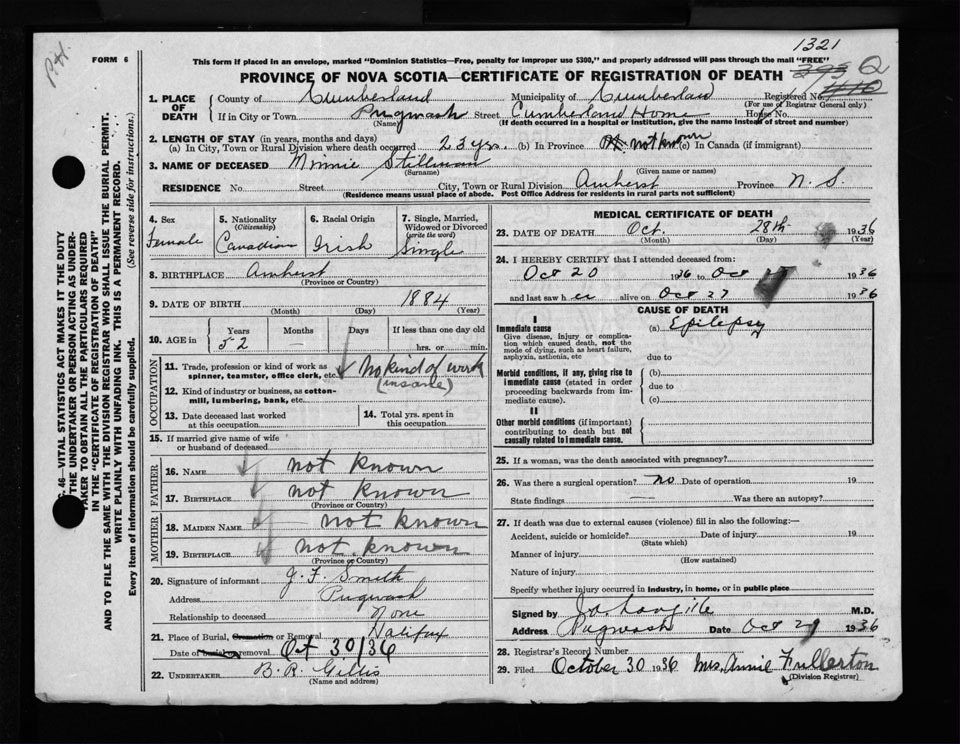 P.H.
1321
FORM 6
This form if placed in an envelope, marked "Dominion Statistics—Free, penalty for improper use $300," and properly addressed will pass through the mail "FREE"
PROVINCE OF NOVA SCOTIA—CERTIFICATE OF REGISTRATION OF DEATH
1. PLACE OF DEATH { County of Cumberland Municipality of Cumberland Registered No.
(For use of Registrar General only)
If in City or Town Pugwash Street Cumberland Home House No.
(Name) (If death occurred in a hospital or institution, give the name instead of street and number)
2. LENGTH OF STAY (in years, months and days)
(a) In City, Town or Rural Division where death occurred 23 yrs. (b) In Province not known (c) In Canada (if immigrant)
3. NAME OF DECEASED Minnie Stillman
(Surname) (Given name or names)
RESIDENCE No. Street City, Town or Rural Division Amherst Province N. S.
(Residence means usual place of abode. Post Office Address for residents in rural parts not sufficient)
4. Sex Female
5. Nationality (Citizenship) Canadian
6. Racial Origin Irish
7. Single, Married, Widowed or Divorced (write the word) Single
8. BIRTHPLACE Amherst
(Province or Country)
9. DATE OF BIRTH 1884
(Month) (Day) (Year)
10. AGE in { Years 52 Months — Days If less than one day old hrs. or min.
OCCUPATION
11. Trade, profession or kind of work as spinner, teamster, office clerk, etc. No kind of work
(insane)
12. Kind of industry or business, as cotton-mill, lumbering, bank, etc.
13. Date deceased last worked at this occupation
14. Total yrs. spent in this occupation
15. If married give name of wife or husband of deceased
FATHER
16. NAME not known
17. BIRTHPLACE not known
(Province or Country)
MOTHER
18. MAIDEN NAME not known
19. BIRTHPLACE not known
(Province or Country)
20. Signature of informant J. F. Smith
Address Pugwash
Relationship to deceased None
21. Place of Burial, Cremation or Removal Halifax
Date of burial or removal Oct 30/36
22. UNDERTAKER B. R. Gillis
(Name and address)
MEDICAL CERTIFICATE OF DEATH
23. DATE OF DEATH Oct. 28th 1936
(Month) (Day) (Year)
24. I HEREBY CERTIFY that I attended deceased from:
Oct 20 1936 to Oct 1936
and last saw h er alive on Oct 27 1936
CAUSE OF DEATH
I
Immediate cause (a) Epilepsy
Give disease, injury or complication which caused death, not the mode of dying, such as heart failure, asphyxia, asthenia, etc
due to
Morbid conditions, if any, giving rise to immediate cause (stated in order proceeding backwards from immediate cause).
(b)
due to
(c)
II
Other morbid conditions (if important) contributing to death but not causally related to immediate cause.
25. If a woman, was the death associated with pregnancy?
26. Was there a surgical operation? no Date of operation 19
State findings — Was there an autopsy?
27. If death was due to external causes (violence) fill in also the following:—
Accident, suicide or homicide? Date of injury 19
(State which)
Manner of injury
(How sustained)
Nature of injury
Specify whether injury occurred in industry, in home, or in public place
Signed by M.D.
Address Pugwash Date Oct 29 1936
28. Registrar's Record Number
29. Filed October 30 1936 Mrs. Annie Fullerton
(Division Registrar)
46—VITAL STATISTICS ACT MAKES IT THE DUTY
THE UNDERTAKER OR PERSON ACTING AS UNDERTAKER TO OBTAIN ALL THE PARTICULARS REQUIRED
IN THE "CERTIFICATE OF REGISTRATION OF DEATH"
AND TO FILE THE SAME WITH THE DIVISION REGISTRAR WHO SHALL ISSUE THE BURIAL PERMIT.
WRITE PLAINLY WITH UNFADING INK. THIS IS A PERMANENT RECORD.
Every item of information should be carefully supplied. (See reverse side for instructions.)